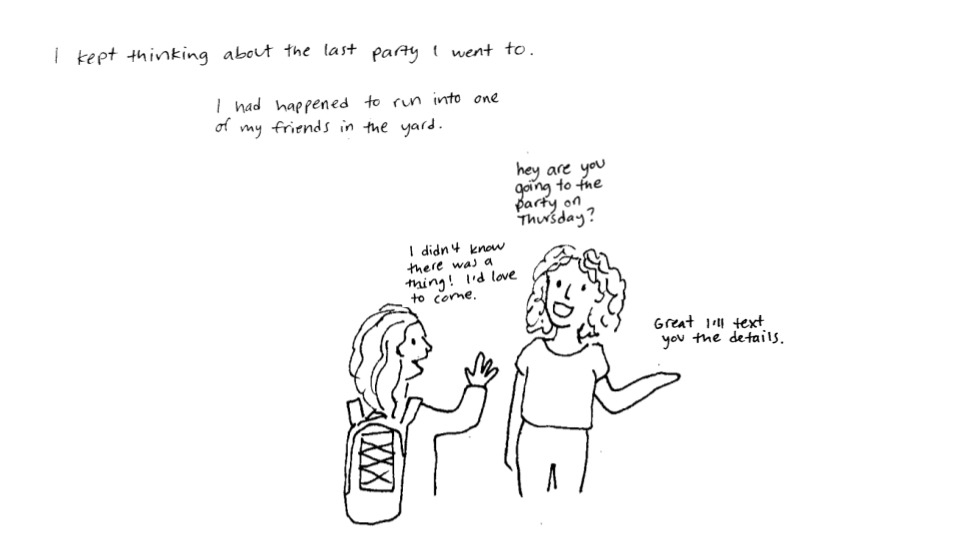 I kept thinking about the last party I went to.
I had happened to run into one
of my friends in the yard.
hey are you
going to the
party on
Thursday?
I didn't know
there was a
thing! I'd love
to come.
Great I'll text
you the details.